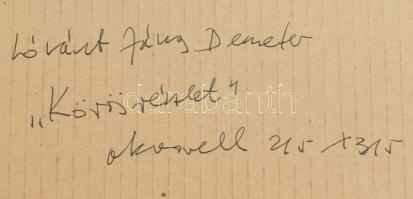 Lóránt János Demeter
"Körösrészlet"
akvarell 215 x 315
darabanth